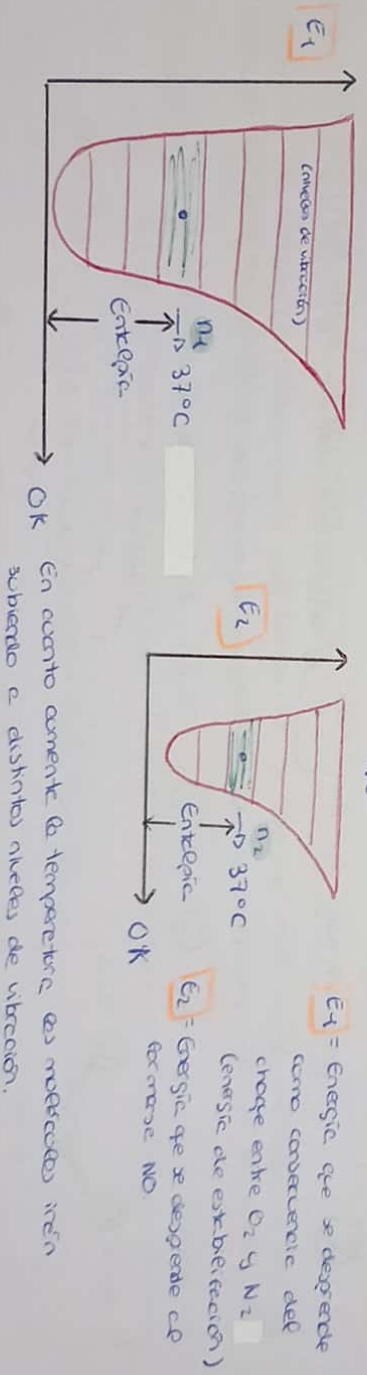 E1
(niveles de vibración)
n1
→ 37ºC
Entalpía
0K
E2
n2
→ 37ºC
Entalpía
0K
E1 = Energía que se desprende
como consecuencia del
choque entre O2 y N2
(energía de estabilización)
E2 = Energía que se desprende al
formarse NO.
En cuanto aumente la temperatura las moléculas irán
subiendo a distintos niveles de vibración.